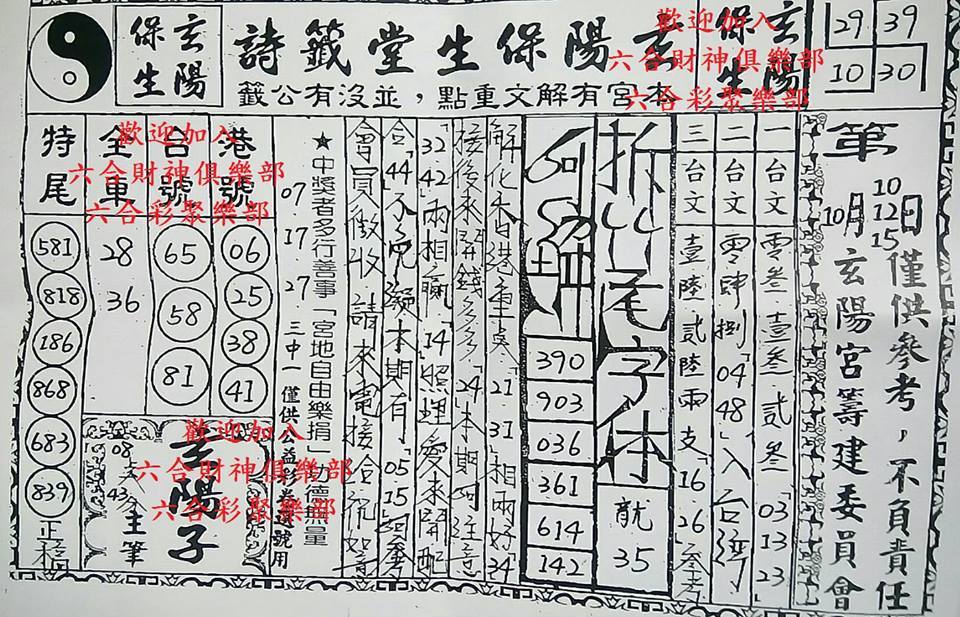 玄陽保生
玄陽保生堂籤詩
本宮有解文重點，並沒有公籤
玄陽保生
29 39
10 30
歡迎加入
六合財神俱樂部
六合彩聚樂部
第
10 12 15日
10月
僅供參考，不負責任
玄陽宮籌建委員會
一台文零叁.壹叁.貳叁「03 13 23」
二台文零肆捌「04 48」入
三台文壹陸貳陸兩支16 26參考
拆
尾字休
35
390
903
036
361
614
142
解化香港
21 31 相兩好34
接後來開錢多多「24」本期
注意
32 42 兩相贏「14」照理愛來開配
合「44」不
本期有「05 15」
會員徵收請來電接合
★中獎者多行善事「宮地自由樂捐」功德無量
07 17 27 三中一僅供公益彩券選號用
港號
06
25
38
41
台號
65
58
81
全車
28
36
特尾
581
818
186
868
683
839
正稿
玄陽子
主筆
08
43
歡迎加入
六合財神俱樂部
六合彩聚樂部
歡迎加入
六合財神俱樂部
六合彩聚樂部